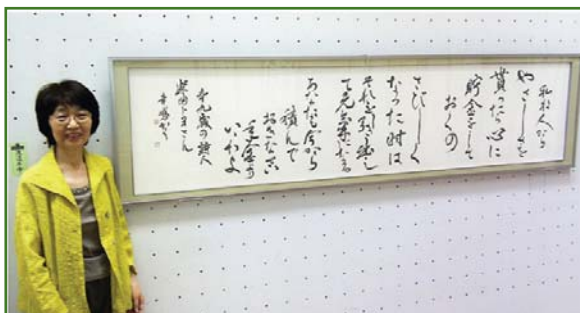 私ね人から
やさしさを
貰ったら心に
貯金をして
おくの
さびしく
なった時は
それを引き出し
て元気になる
あなたも今から
積んで
おきなさい
年金より
いいわよ
九歳の詩人
柴田トヨさん